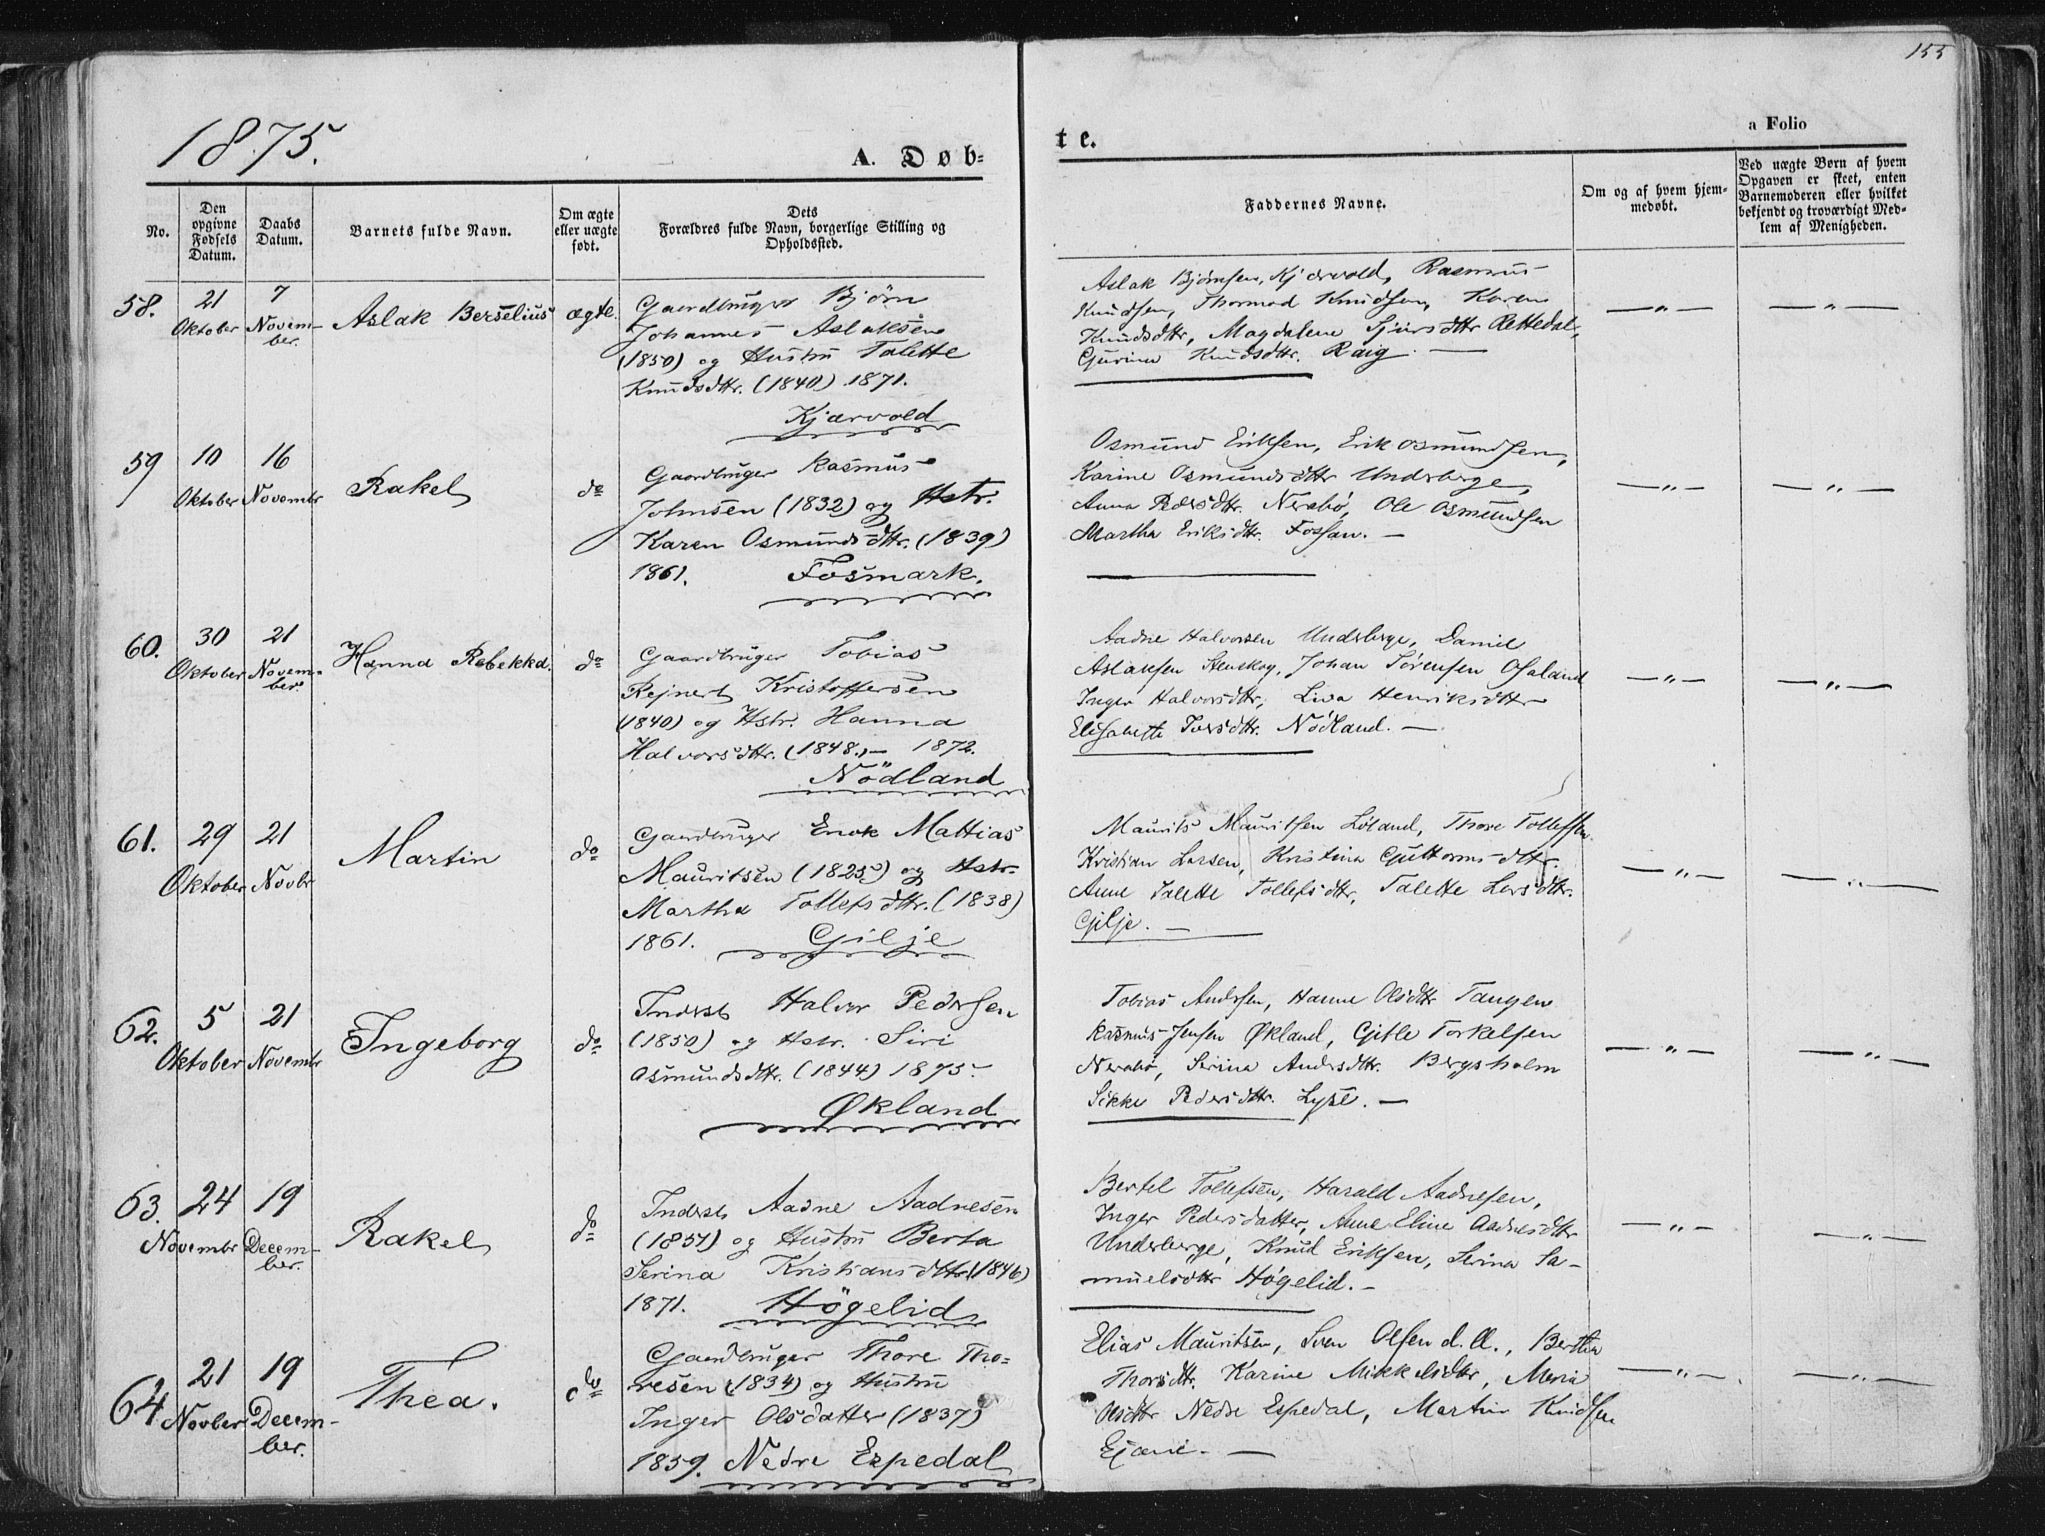 155
1875.
A. Døb-
te.
a Folio
No.
Den opgivne Fødsels Datum.
Daabs Datum.
Barnets fulde Navn.
Om ægte eller uægte født.
Dets
Forældres fulde Navn, borgerlige Stilling og
Opholdssted.
Faddernes Navne.
Om og af hvem hjem-
medøbt.
Ved uægte Børn af hvem
Opgaven er skeet, enten
Barnemoderen eller hvilket
bekjendt og troværdigt Med-
lem af Menigheden.
58.
21 Oktober
7 Novem-
ber.
Aslak Berselius
ægte.
Gaardbruger Bjørn
Johannes Aslaksen
(1850) og Hustru Talette
Knudsdttr. (1840) 1871.
Kjærvold
Aslak Bjørnsen, Kjærvold, Rasmus
Knudsen, Thormod Knudsen, Karen
Knudsdttr, Magdalene Sjursdttr Rettedal,
Gurina Knudsdttr. Raig. —
— " —
— " —
59
10 Oktober
16 Novembr
Rakel
do
Gaardbruger Rasmus
Johnsen (1832) og Hstr.
Karen Osmundsdttr. (1839)
1861. Fosmark.
Osmund Eriksen, Erik Osmundsen,
Karine Osmundsdttr Underberge,
Anna Pedersdttr. Nerabø, Ole Osmundsen
Martha Eriksdttr. Fossan. —
— " —
— " —
60.
30 Oktober
21 Novem-
ber.
Hanna Rebekka.
do
Gaardbruger Tobias
Rejnert Kristoffersen
(1840) og Hstr. Hanna
Halvorsdttr. (1848.) — 1872.
Nödland
Aadne Halvorsen Underberge, Daniel
Aslaksen Stenskog, Johan Sørensen Osaland
Inger Halvorsdttr, Liva Henriksdttr
Elisabeth Iversdttr. Nödland. —
— " —
— " —
61.
29 Oktober
21 Novbr
Martin
do
Gaardbruger Enok Mattias
Mauritsen (1825) og Hstr.
Martha Tollefsdttr. (1838)
1861. Gilje
Maurits Mauritsen Löland, Thore Tollefsen.
Kristian Larsen, Kristina Guttormsdttr.
Anne Talette Tollefsdttr, Talette Larsdttr.
Gilje. —
— " —
— " —
62.
5 Oktober
21 Novembr
Ingeborg
do
Inderst Halvor Pedersen
(1850) og Hstr. Siri
Osmundsdttr. (1844) 1875.
Økland
Tobias Andersen, Hanne Olsdttr Tangen
Rasmus Jensen Økland, Gitle Torkelsen
Nerabø, Serina Andersdttr. Bergsholm
Sikke Pedersdttr. Lyse. —
— " —
— " —
63.
24 Novembr
19 Decem-
ber.
Rakel
do
Inderst Aadne Aadnesen
(1851) og Hustru Berta
Serina Kristiansdttr (1846)
1871. Högelid
Bertel Tollefsen, Harald Aadnesen,
Inger Pedersdatter, Anne Eline Aadnesdttr
Underberge, Knud Eriksen, Serina Sa-
muelsdttr Högelid. —
— " —
— " —
64
21 Novber
19 Decem-
ber.
Thea.
do
Gaardbruger Thore Tho-
resen (1834) og Hustru
Inger Olsdatter (1837)
1859. Nedre Espedal
Elias Mauritsen, Sven Olsen d. Æ., Bertha
Thorsdttr. Karine Mikkelsdttr, Maria
Olsdttr Nedre Espedal, Martin Knudsen
—
— " —
— " —